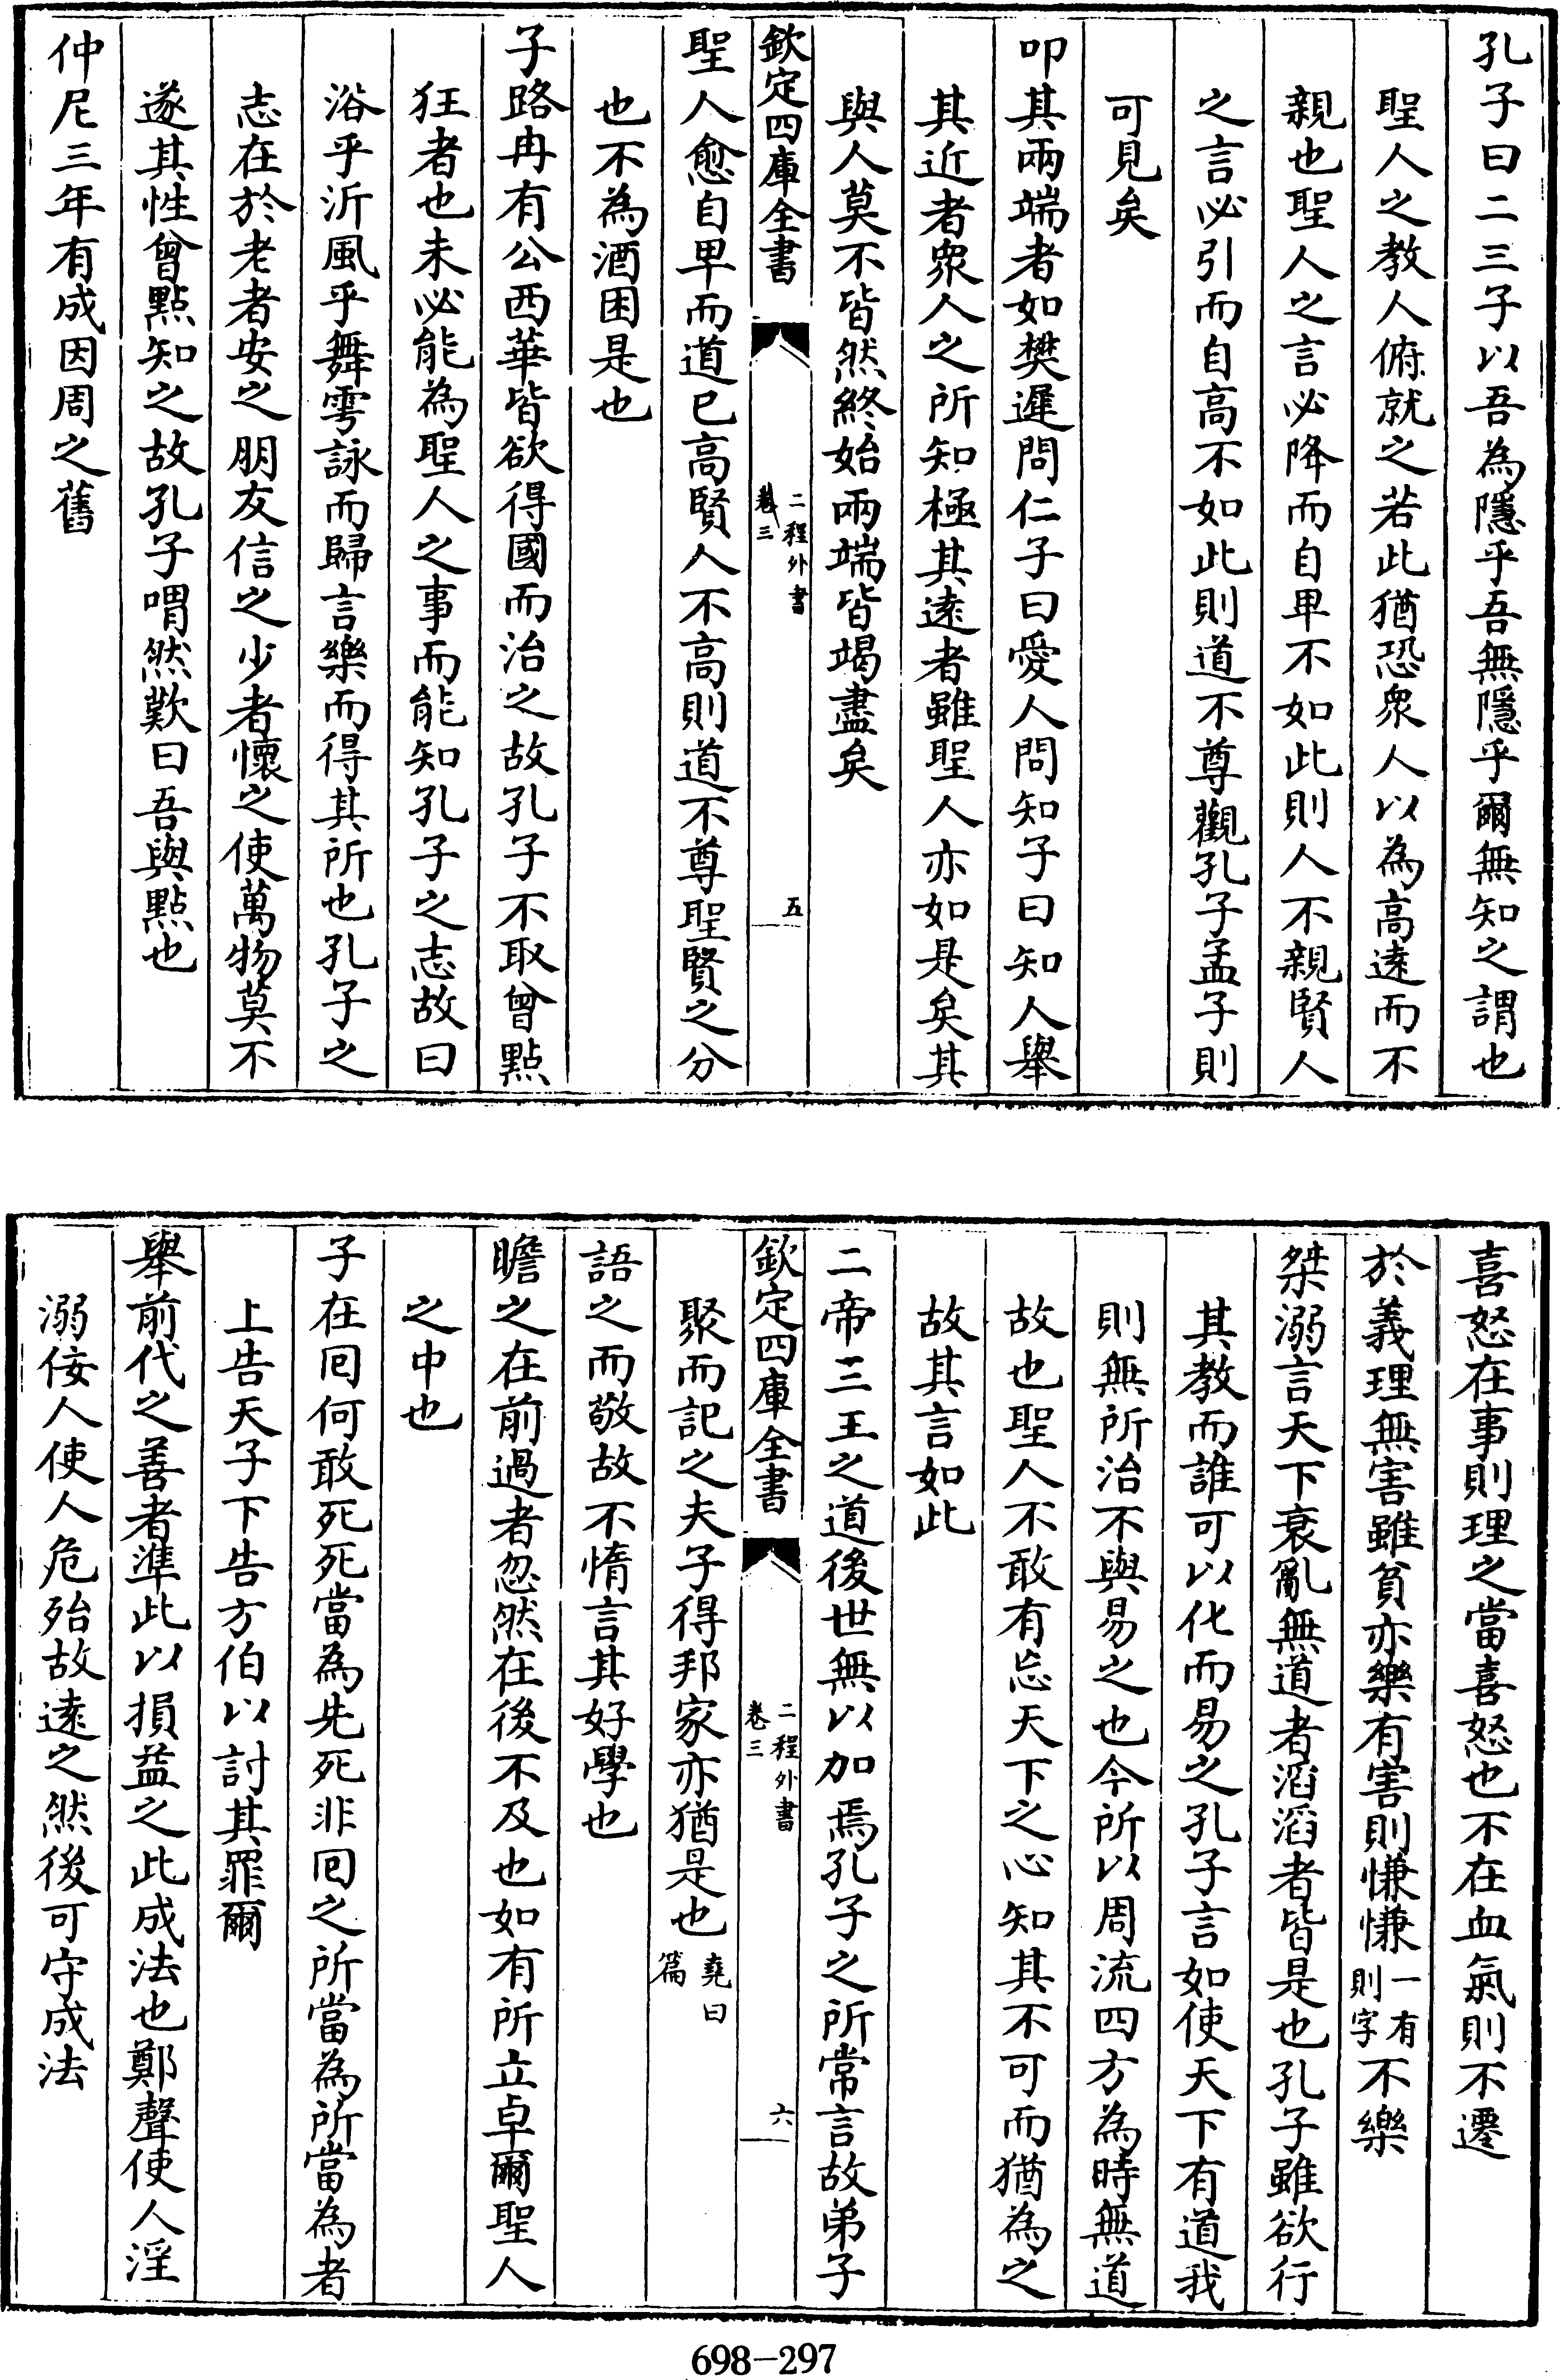 孔子曰二三子以吾為隱乎吾無隱乎爾無知之謂也
聖人之教人俯就之若此猶恐衆人以為高逺而不
親也聖人之言必降而自卑不如此則人不親賢人
之言必引而自高不如此則道不尊觀孔子孟子則
可見矣
叩其兩端者如樊遲問仁子曰愛人問知子曰知人舉
其近者衆人之所知極其逺者雖聖人亦如是矣其
與人莫不皆然終始兩端皆竭盡矣
欽定四庫全書
二程外書
卷三
五
聖人愈自卑而道已高賢人不高則道不尊聖賢之分
也不為酒困是也
子路冉有公西華皆欲得國而治之故孔子不取曾點
狂者也未必能為聖人之事而能知孔子之志故曰
浴乎沂風乎舞雩詠而歸言樂而得其所也孔子之
志在於老者安之朋友信之少者懷之使萬物莫不
遂其性曾點知之故孔子喟然歎曰吾與點也
仲尼三年有成因周之舊
喜怒在事則理之當喜怒也不在血氣則不遷
於義理無害雖貧亦樂有害則慊慊一有則字不樂
桀溺言天下衰亂無道者滔滔者皆是也孔子雖欲行
其教而誰可以化而易之孔子言如使天下有道我
則無所治不與易之也今所以周流四方為時無道
故也聖人不敢有忘天下之心知其不可而猶為之
故其言如此
二帝三王之道後世無以加焉孔子之所常言故弟子
欽定四庫全書
二程外書
卷三
六
聚而記之夫子得邦家亦猶是也堯曰篇
語之而敬故不惰言其好學也
瞻之在前過者忽然在後不及也如有所立卓爾聖人
之中也
子在囘何敢死死當為先死非囘之所當為所當為者
上告天子下告方伯以討其罪爾
舉前代之善者準此以損益之此成法也鄭聲使人淫
溺佞人使人危殆故逺之然後可守成法
698-297